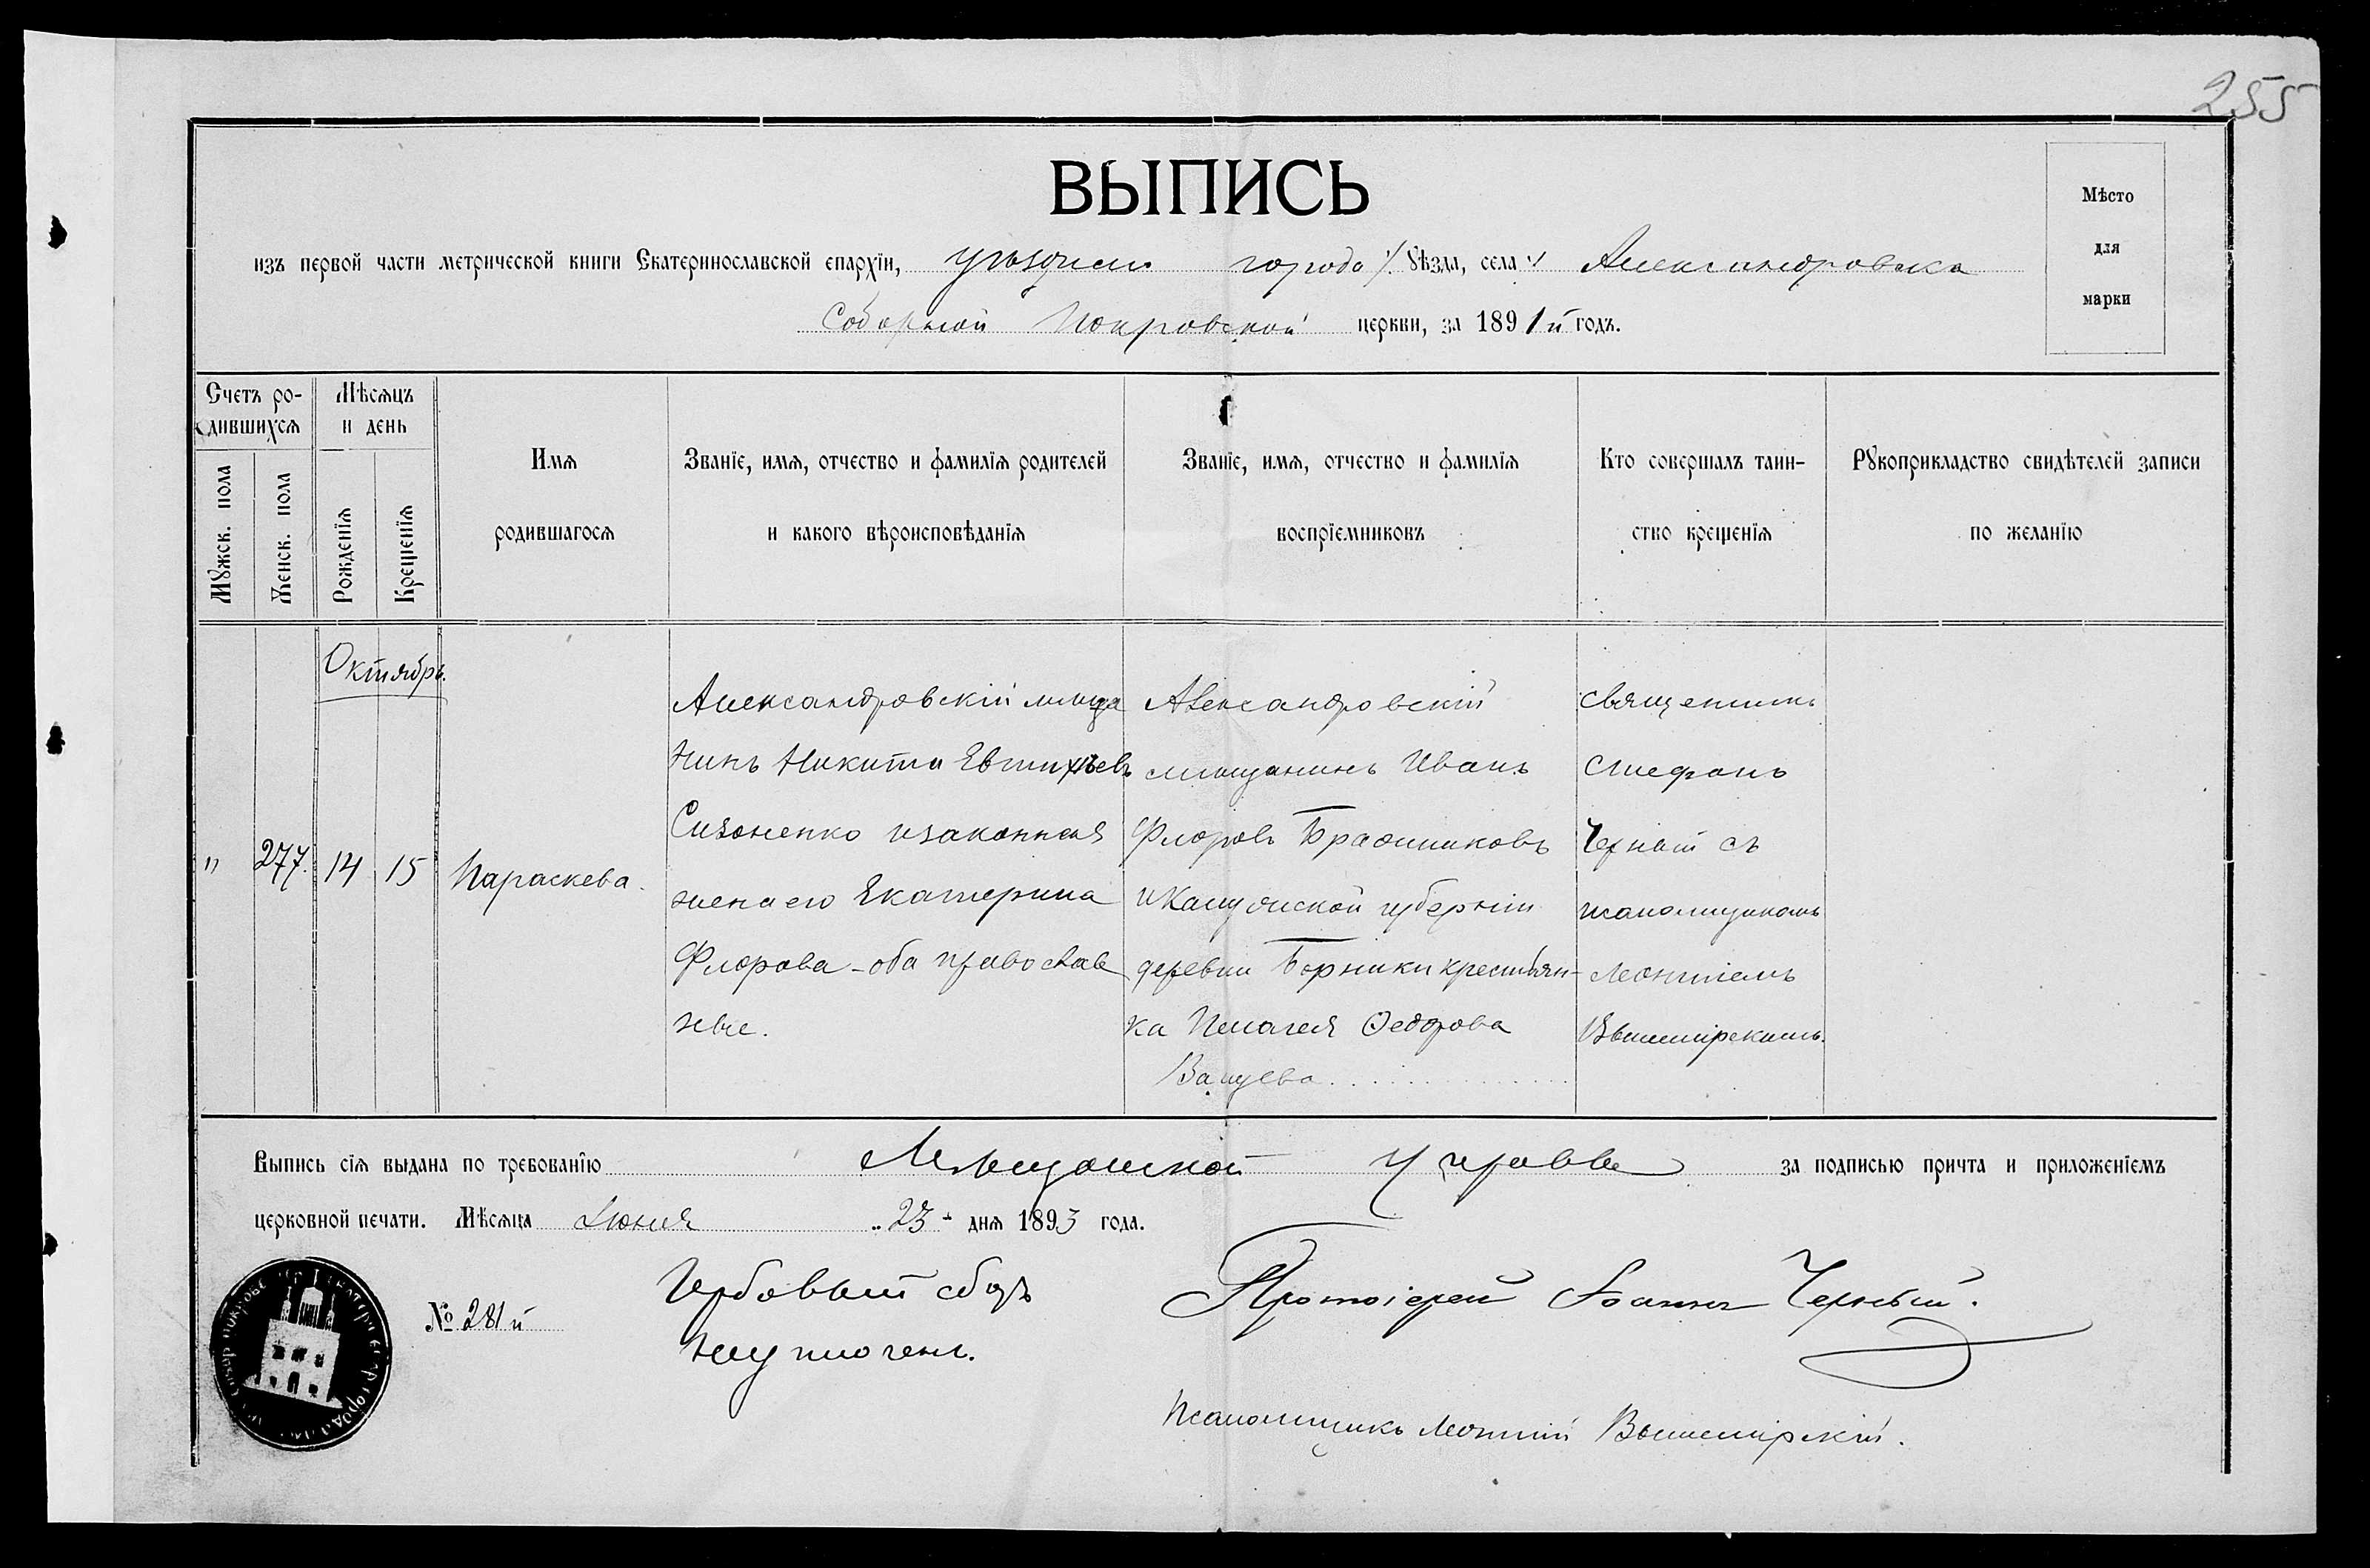 255
ВЫПИСЬ
Мѣсто
для
марки
изъ первой части метрической книги Екатеринославской епархіи, уѣзднаго города Уѣзда, села Александровска
Соборной Покровской церкви, за 1891й годъ.
Счетъ ро-
дившихся
Мѣсяцъ
и день
Мужск. пола
Женск. пола
Рожденія
Крещенія
Имя
родившагося
Званіе, имя, отчество и фамилія родителей
и какого вѣроисповѣданія
Званіе, имя, отчество и фамилія
воспріемниковъ
Кто совершалъ таин-
ство крещенія
Рукоприкладство свидѣтелей записи
по желанію
Октябрь.
" 277. 14 15 Параскева.
Александровскій мѣща
нинъ Никита Евтихіевъ
Сизоненко и законная
жена его Екатерина
Флорова - оба православ
ные.
Александровскій
мѣщанинъ Иванъ
Флоровъ Бражниковъ
и Калужской губерніи
деревни Борники крестьян-
ка Пелагея Ѳедорова
священникъ
Стефанъ
съ
псаломщикомъ
Леонтіемъ
Вышемірскимъ.
Выпись сія выдана по требованію Мѣщанской Управы за подписью причта и приложеніемъ
церковной печати. Мѣсяца Іюня 23 дня 1893 года.
№ 281й
Гербовый сборъ
не уплоченъ.
Протоіерей Іоаннъ Черный.
Псаломщикъ Леонтій Вышемірскій.